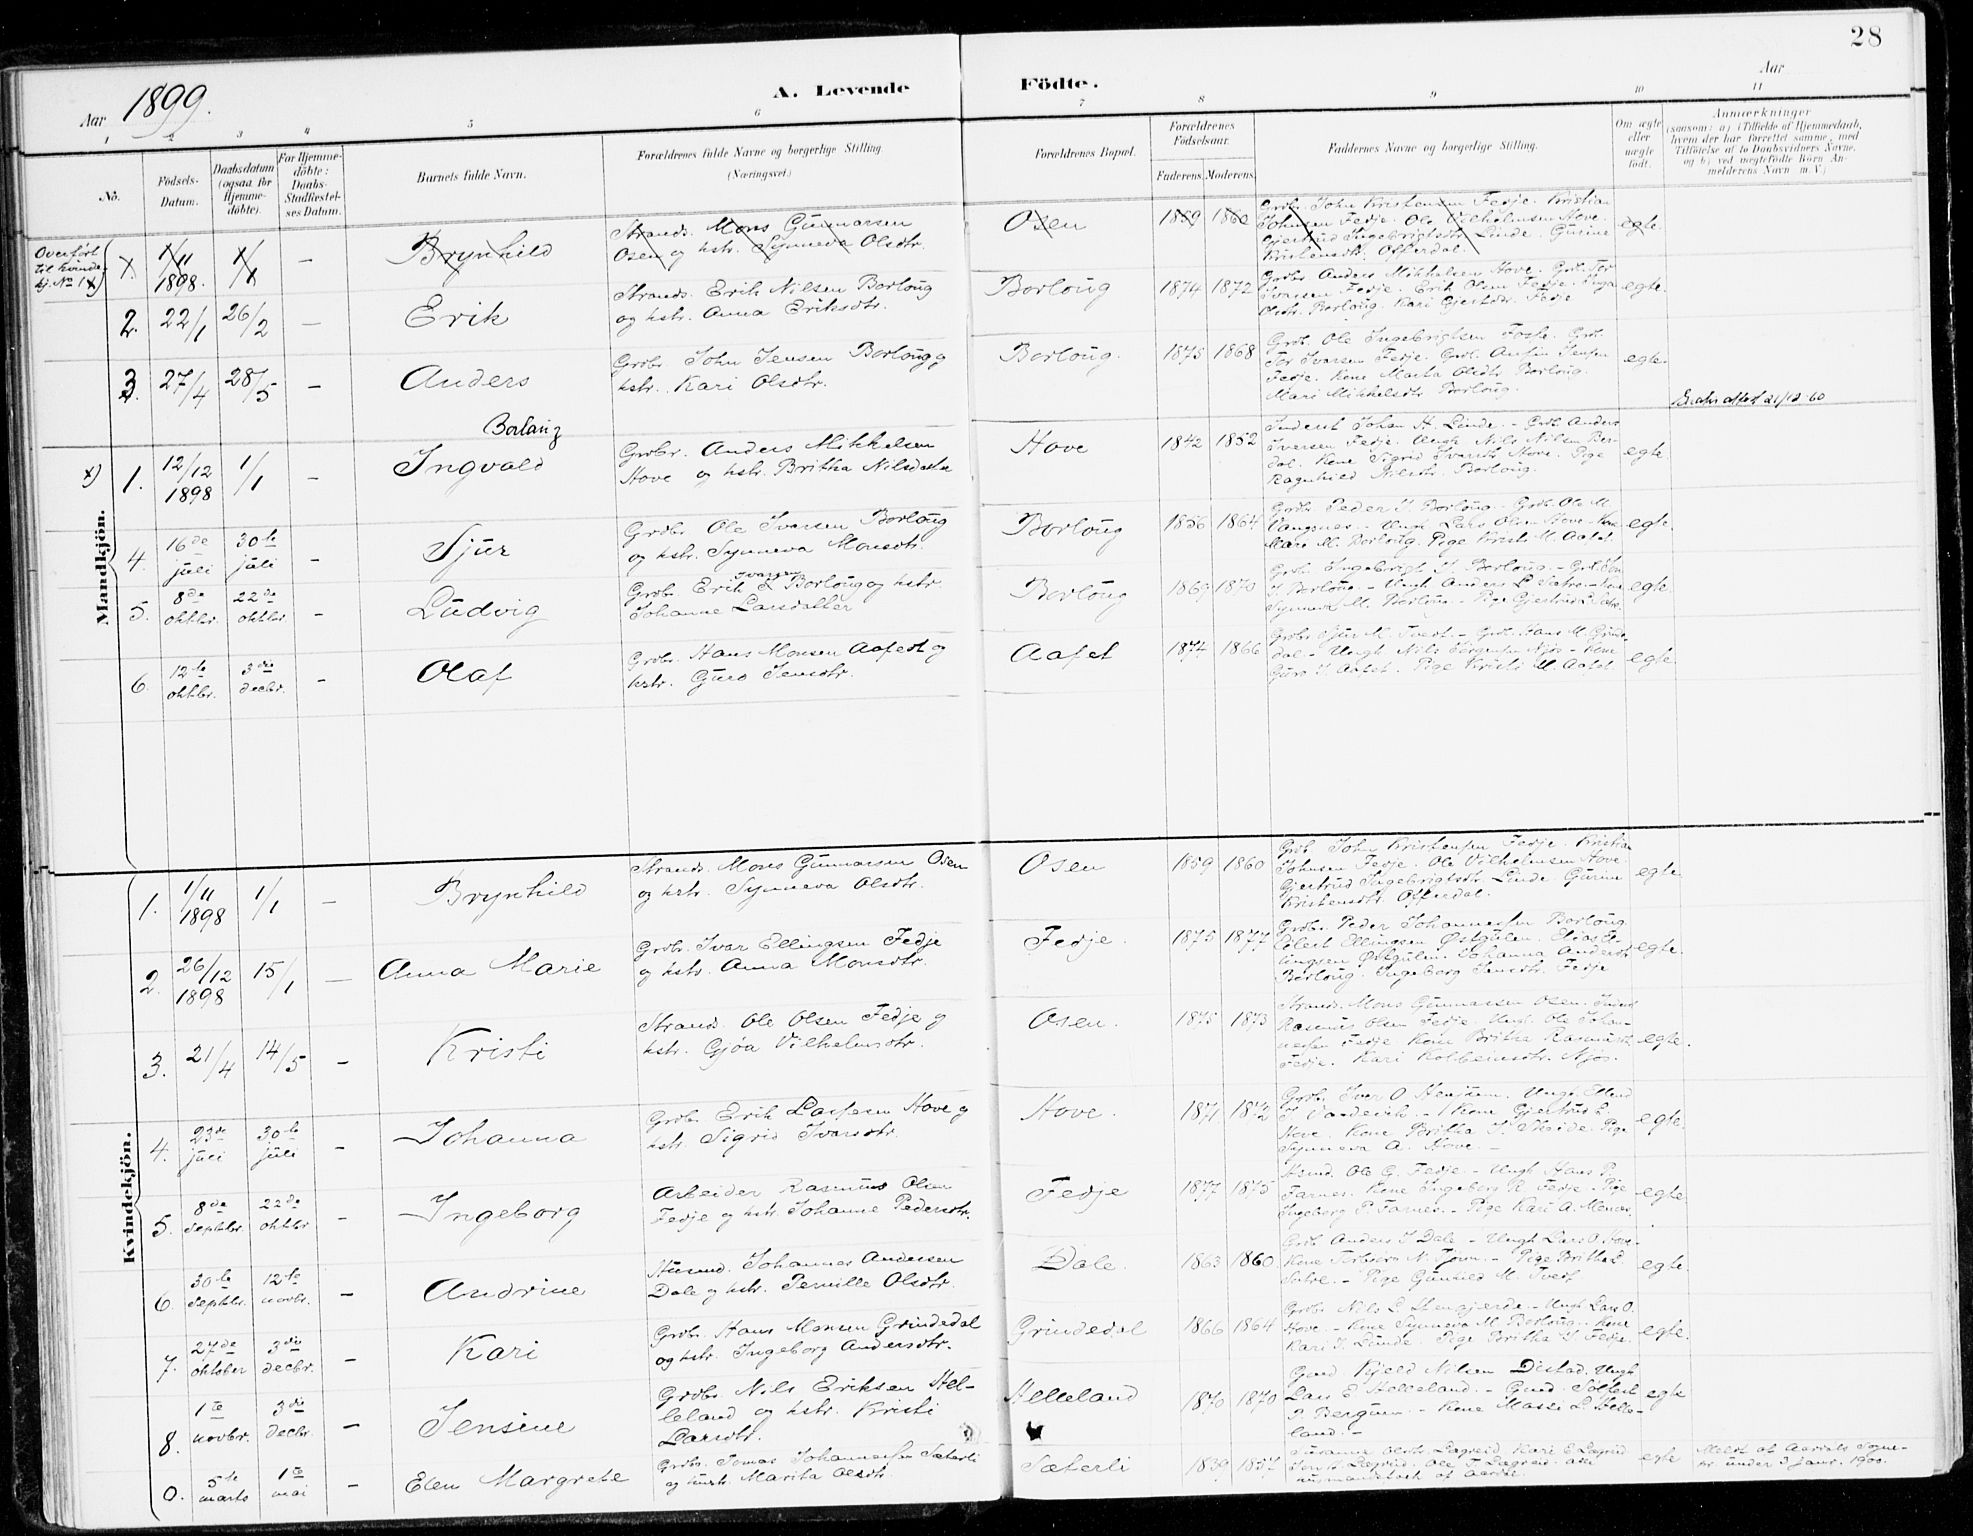 28
Aar 1899.
A. Levende Födte.
Aar
1 2 3 4 5 6 7 8 9 10 11
No.
Födsels-Datum.
Daabsdatum (ogsaa for Hjemme-döbte).
For Hjemme-döbte: Daabs-Stadfæstel-ses Datum.
Barnets fulde Navn.
Forældrenes fulde Navne og borgerlige Stilling (Næringsvei.)
Forældrenes Bopæl.
Forældrenes Födselsaar.
Faderens. Moderens.
Faddernes Navne og borgerlige Stilling.
Om ægte eller uægte födt.
Anmærkninger
(saasom: a) i Tilfælde af Hjemmedaab,
hvem der har forrettet samme, med
Tilföielse af to Daabsvidners Navne,
og b) ved uægtefödte Börn An-
melderens Navn m. V.)
Mandkjön.
Overfört
til kvinde-
kj. No 1 x)
1/11 1898. 1/1 – Brynhild
Strands. Mons Gunnarsen
Osen og hstr. Synneva Olsdtr.
Osen 1859 1860
Grdbr. John Kristensen Fedje. Kristian
Johnsen Fedje. Ole Vilhelmsen Hove.
Gjertrud Ingebrigtsdtr. Linde. Gurine
Kristensdtr. Offerdal.
egte
2. 22/1 26/2 – Erik
Strands. Erik Nilsen Borloug
og hstr. Anna Eriksdtr.
Borloug 1874 1872
Grdbr. Anders Mikkelsen Hove. Grdb. Tor
Ivarsen Fedje. Erik Olsen Fedje. Inga
Olsdtr. Borloug. Kari Gjertsdtr. Fedje
egte.
3. 27/4 28/5 – Anders
Borlaug
Grdbr. John Jensen Borloug og
hstr. Kari Olsdtr.
Borloug. 1875 1868
Grdb. Ole Ingebrigtsen Foss. Grdb.
Tor Ivarsen Fedje. Grdb. Anfin Jensen
Fedje. Kone Marta Olsdtr Borloug.
Mari Mikkelsdtr. Borloug.
egte.
21/12-60
x) 1. 12/12 1898 1/1 – Ingvald
Grdbr. Anders Mikkelsen
Hove og hstr. Britha Nilsdatter
Hove 1842 1852
Inderst Johan H. Linde. – Grdb. Anders
Iversen Fedje. Ungk. Nils Nilsen Ber-
dal. Kone Sigrid Ivarsdtr Hove. Pige
Ragnhild Nilsdtr. Borloug.
egte.
4. 16de juli 30te juli – Sjur
Grdbr. Ole Ivarsen Borloug
og hstr. Synneva Monsdtr.
Borloug 1856 1864
Grdb. Peder J. Borloug. – Grdb. Ole M.
Vangsnes. – Ungk. Lars Olsen Hove – Kone
Mari M. Borloug. Pige Kristi M. Aafet.
egte.
5. 8de oktbr. 22de oktbr – Ludvig
Grdbr. Erik Ivarsen Borloug og hstr.
Johanne Larsdatter
Borloug 1869 1870
Grdb. Ingebrigt J. Borloug. – Grdb. Jon
J. Borloug. – Ungk. Anders L Sætre. – Kone
Synneva M. Borloug. – Pige Gjertrud L. Sætre.
egte.
6. 12te oktbr. 3die decbr. – Olaf
Grdbr. Hans Monsen Aafedt og
hstr. Guro Jensdtr.
Aafet 1874 1866
Grdbr. Sjur M. Tvedt. – Grdb. Hans M. Grinde-
dal. – Ungk. Nils Jörgensen Njös – Kone
Guro J. Aafet. Pige Kristi M. Aafet.
egte.
Kvindekjön.
1. 1/11 1898 1/1 – Brynhild
Strands. Mons Gunnarsen Osen
og hstr. Synneva Olsdtr.
Osen 1859 1860
Grdb. John Kristensen Fedje. Kristian
Johnsen Fedje. Ole Vilhelmsen Hove.
Gjertrud Ingebrigtsdtr. Linde. Gurine
Kristensdtr. Offerdal.
egte.
2. 26/12 1898 15/1 – Anna Marie
Grdbr. Ivar Ellingsen Fedje
og hstr. Anna Monsdtr.
Fedje. 1875 1877
Grdbr. Peder Johannessen Borloug.
Eilert Ellingsen Østgulen. Elias El-
lingsen Østgulen. Johanna Andersdtr
Borloug. Ingeborg Jensdtr. Fedje
egte.
3. 21/4 14/5 – Kristi
Strands. Ole Olsen Fedje og
hstr. Gjöa Vilhelmsdtr.
Osen. 1875 1873
Strands. Mons Gunnarsen Osen. Inderst
Rasmus Olsen Fedje. Ungk. Ole Johan-
nessen Fedje Kone Britha Rasmusdtr.
Fedje. Kari Kolbeinsdtr. Njös.
egte.
4. 23de juli 30te juli – Johanna
Grdbr. Erik Lassesen Hove og
hstr. Sigrid Ivarsdtr.
Hove. 1871 1872
Grdbr. Iver O. Henjum. Ungk.
Hove. Kone Britha J. Skeide. Pige
Synneva A. Hove. –
egte.
5. 8de Septbr. 22de oktbr – Ingeborg
Arbeider Rasmus Olsen
Fedje og hstr. Johanne Pedersdtr.
Fedje 1877 1875
Husmd. Ole G. Fedje – Ungk Hans P.
Farnes. Kone Ingeborg R. Fedje. – Pige
Ingeborg P. Farnes. – Pige Kari A. Menes.
egte.
6. 30te Septbr. 12te novbr. – Andrine
Husmd. Johannes Andersen
Dale og hstr. Pernille Olsdtr.
Dale. 1863 1860
Grdb Anders J Dale – Ungk Lars O. Hove
Kone Torbjörn N. – Pige Britha L
Sætre. – Pige Gunhild M. Tvedt
egte.
7. 27de oktober 3die decbr. – Kari
Grdbr. Hans Monsen Grindedal
og hstr. Ingeborg Andersdtr.
Grindedal 1866 1864
Grdbr. Nils L Stengjerde. – Ungk Lars O.
Hove – Kone Synneva M Borloug. – Kone
Kari J. Linde. Pige Britha J Fedje.
egte.
8. 1te novbr. 3die decbr. – Jensine
Grdbr Nils Eriksen Hel-
leland og hstr. Kristi
Larsdtr.
Helleland 1870 1870
Gmd Kjeld Nilsen Distad. Ungk
Lars E Helleland. – Gmd. Sölfest
P. Bergum. – Kone Massi L Helle-
land. –
egte
0. 5te marts 1te mai – Elen Margrete
Grdbr. Tomas Johannessen Sæterli
og hustr. Marita Olsdtr.
Sæterli 1839 1857
Susanne Olsdtr. Lægreid. Kari E. Lægreid
Jon H. Lægreid. Ole T. Lægreid. alle
egte
Meldt af Aardals Sogne-
pr. under 3 janr. 1900.